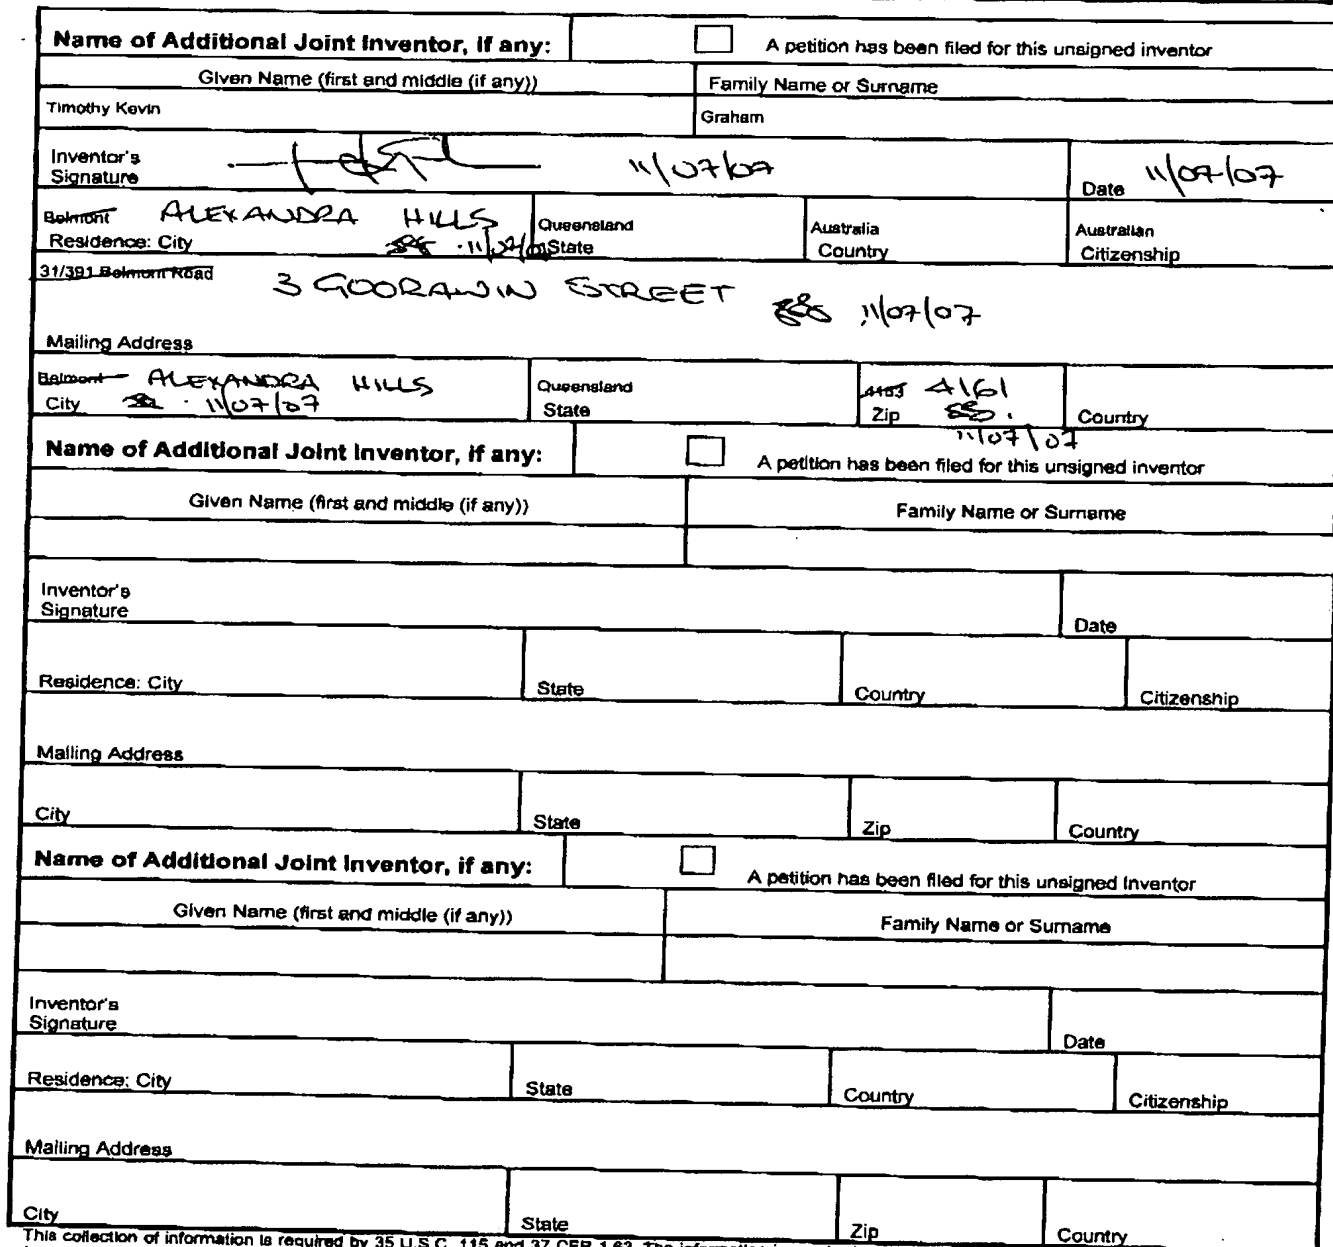 Name of Additional Joint Inventor, if any: A petition has been filed for this unsigned inventor
Given Name (first and middle (if any)) Family Name or Surname
Timothy Kevin Graham
Inventor's
Signature 11/07/07 Date 11/07/07
Belmont ALEXANDRA HILLS Queensland Australia Australian
Residence: City 11/07/07 State Country Citizenship
31/391 Belmont Road 3 GOORAWIN STREET 11/07/07
Mailing Address
Belmont ALEXANDRA HILLS Queensland 4153 4161
City 11/07/07 State Zip Country
11/07/07
Name of Additional Joint Inventor, if any: A petition has been filed for this unsigned inventor
Given Name (first and middle (if any)) Family Name or Surname
Inventor's
Signature Date
Residence: City State Country Citizenship
Mailing Address
City State Zip Country
Name of Additional Joint Inventor, if any: A petition has been filed for this unsigned inventor
Given Name (first and middle (if any)) Family Name or Surname
Inventor's
Signature Date
Residence: City State Country Citizenship
Mailing Address
City State Zip Country
This collection of information is required by 35 U.S.C. 115 and 37 CFR 1.63. The information is